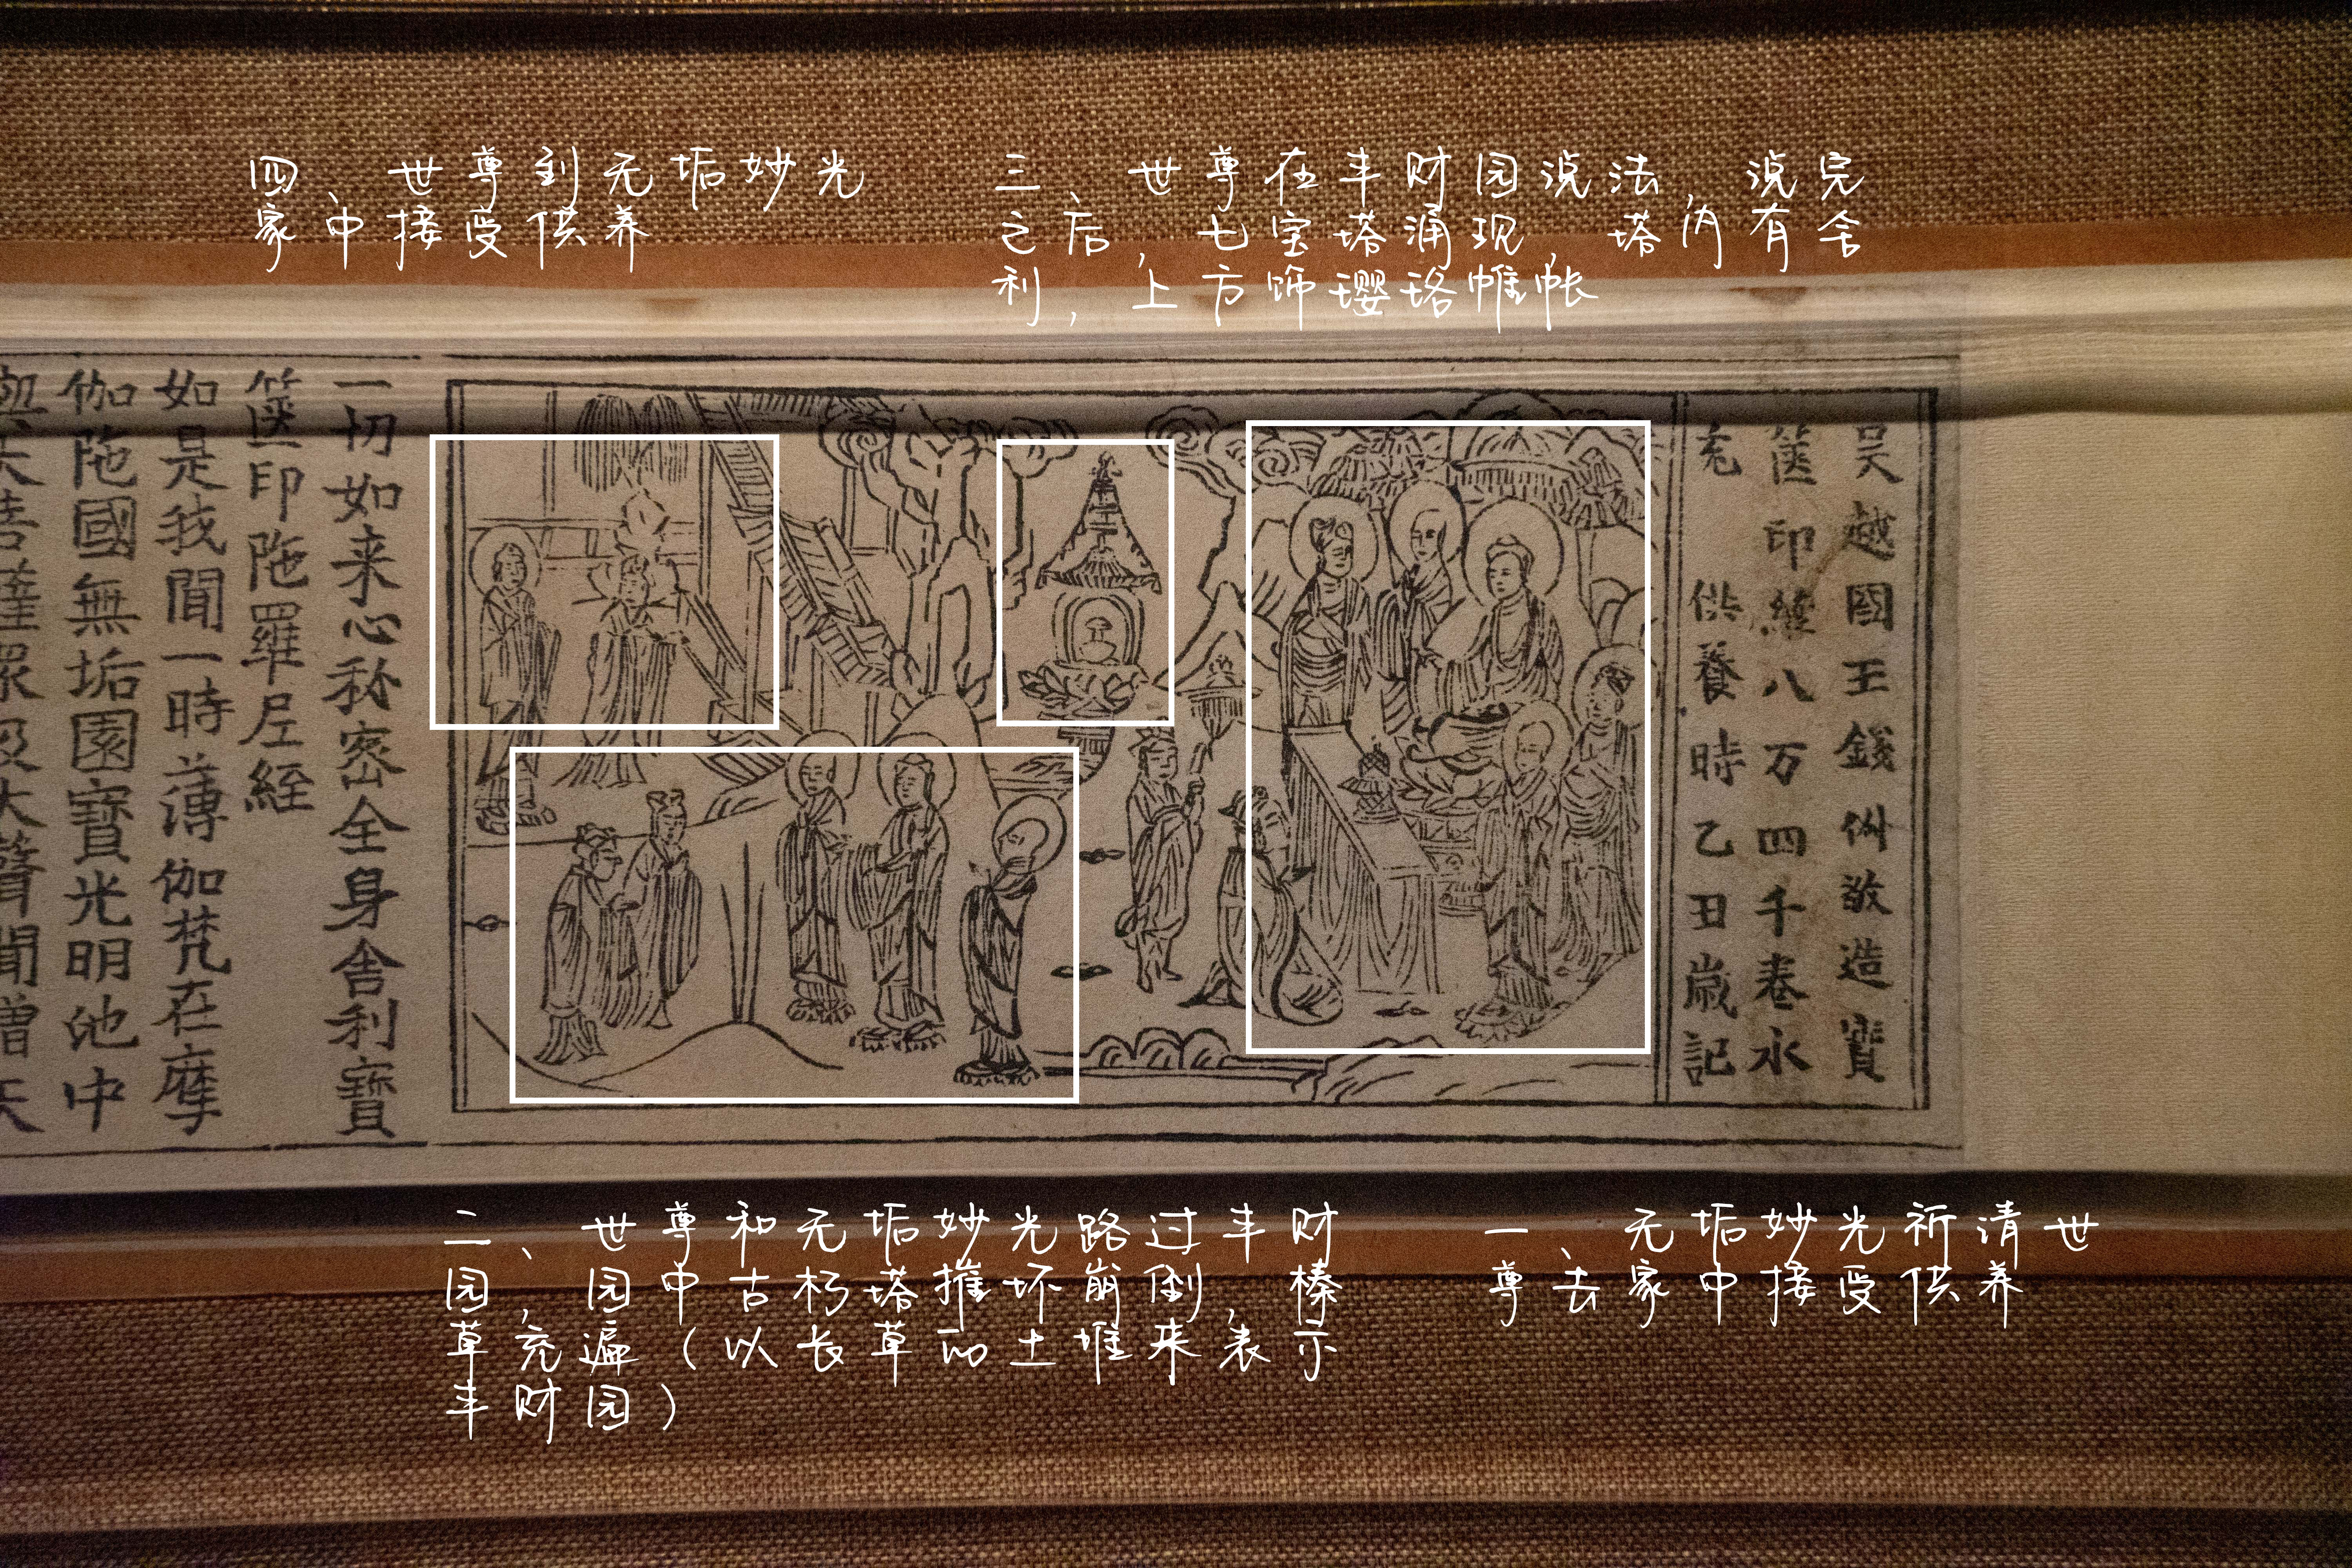 四、世尊到无垢妙光
家中接受供养
三、世尊在丰财园说法，说完
之后，七宝塔涌现，塔内有舍
利，上方饰璎珞帷帐
吴越國王錢俶敬造寶
篋印經八万四千卷永
充供養時乙丑歲記
一切如来心祕密全身舍利寶
篋印陁羅尼經
如是我聞一時薄伽梵在摩
伽陁國無垢園寶光明池中
與大菩薩眾及大聲聞僧天
二、世尊和无垢妙光路过丰财
园，园中古朽塔摧坏崩倒，榛
草充遍（以长草的土堆来表示
丰财园）
一、无垢妙光祈请世
尊去家中接受供养